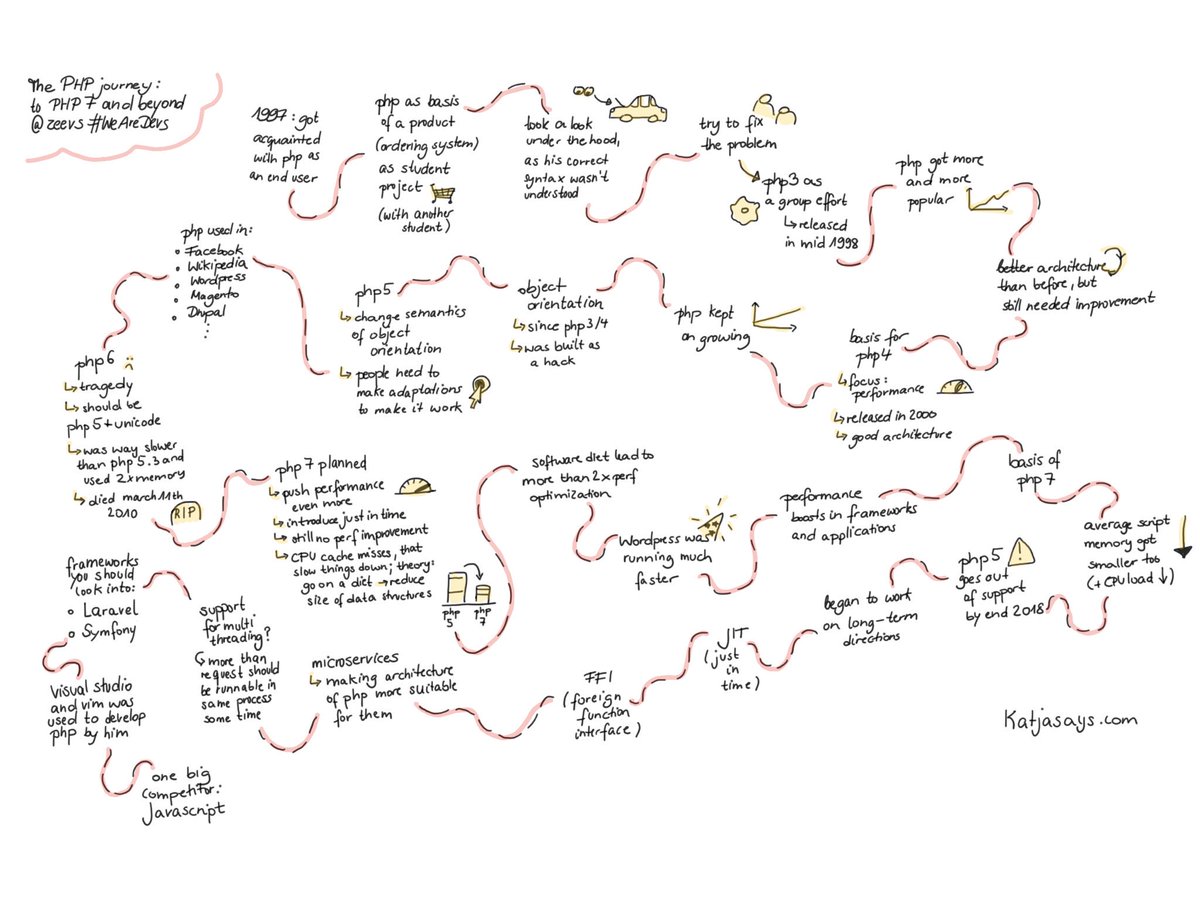 The PHP journey:
to PHP 7 and beyond
@zeevs #WeAreDevs
1997: got
acquainted
with php as
an end user
php as basis
of a product
(ordering system)
as student
project
(with another
student)
took a look
under the hood,
as his correct
syntax wasn't
understood
try to fix
the problem
php3 as
a group effort
↳ released
in mid 1998
php got more
and more
popular
better architecture
than before, but
still needed improvement
basis for
php4
↳ focus:
performance
↳ released in 2000
↳ good architecture
php kept
on growing
object
orientation
↳ since php3/4
↳ was built as
a hack
php5
↳ change semantics
of object
orientation
↳ people need to
make adaptations
to make it work
php used in:
• Facebook
• Wikipedia
• Wordpress
• Magento
• Drupal
⋮
php6 :(
↳ tragedy
↳ should be
php5+unicode
↳ was way slower
than php 5.3 and
used 2x memory
↳ died march 11th
2010
RIP
php7 planned
↳ push performance
even more
↳ introduce just in time
↳ still no perf improvement
↳ CPU cache misses, that
slow things down; theory:
go on a diet → reduce
size of data structures
php
5
php
7
software diet lead to
more than 2x perf
optimization
Wordpress was
running much
faster
performance
boosts in frameworks
and applications
basis of
php7
average script
memory got
smaller too
(+ CPU load ↓)
php5
goes out
of support
by end 2018
!
began to work
on long-term
directions
JIT
(just
in
time)
FFI
(foreign
function
interface)
microservices
↳ making architecture
of php more suitable
for them
support
for multi
threading?
↳ more than
request should
be runnable in
same process
some time
frameworks
you should
look into:
• Laravel
• Symfony
visual studio
and vim was
used to develop
php by him
one big
competitor:
Javascript
Katjasays.com